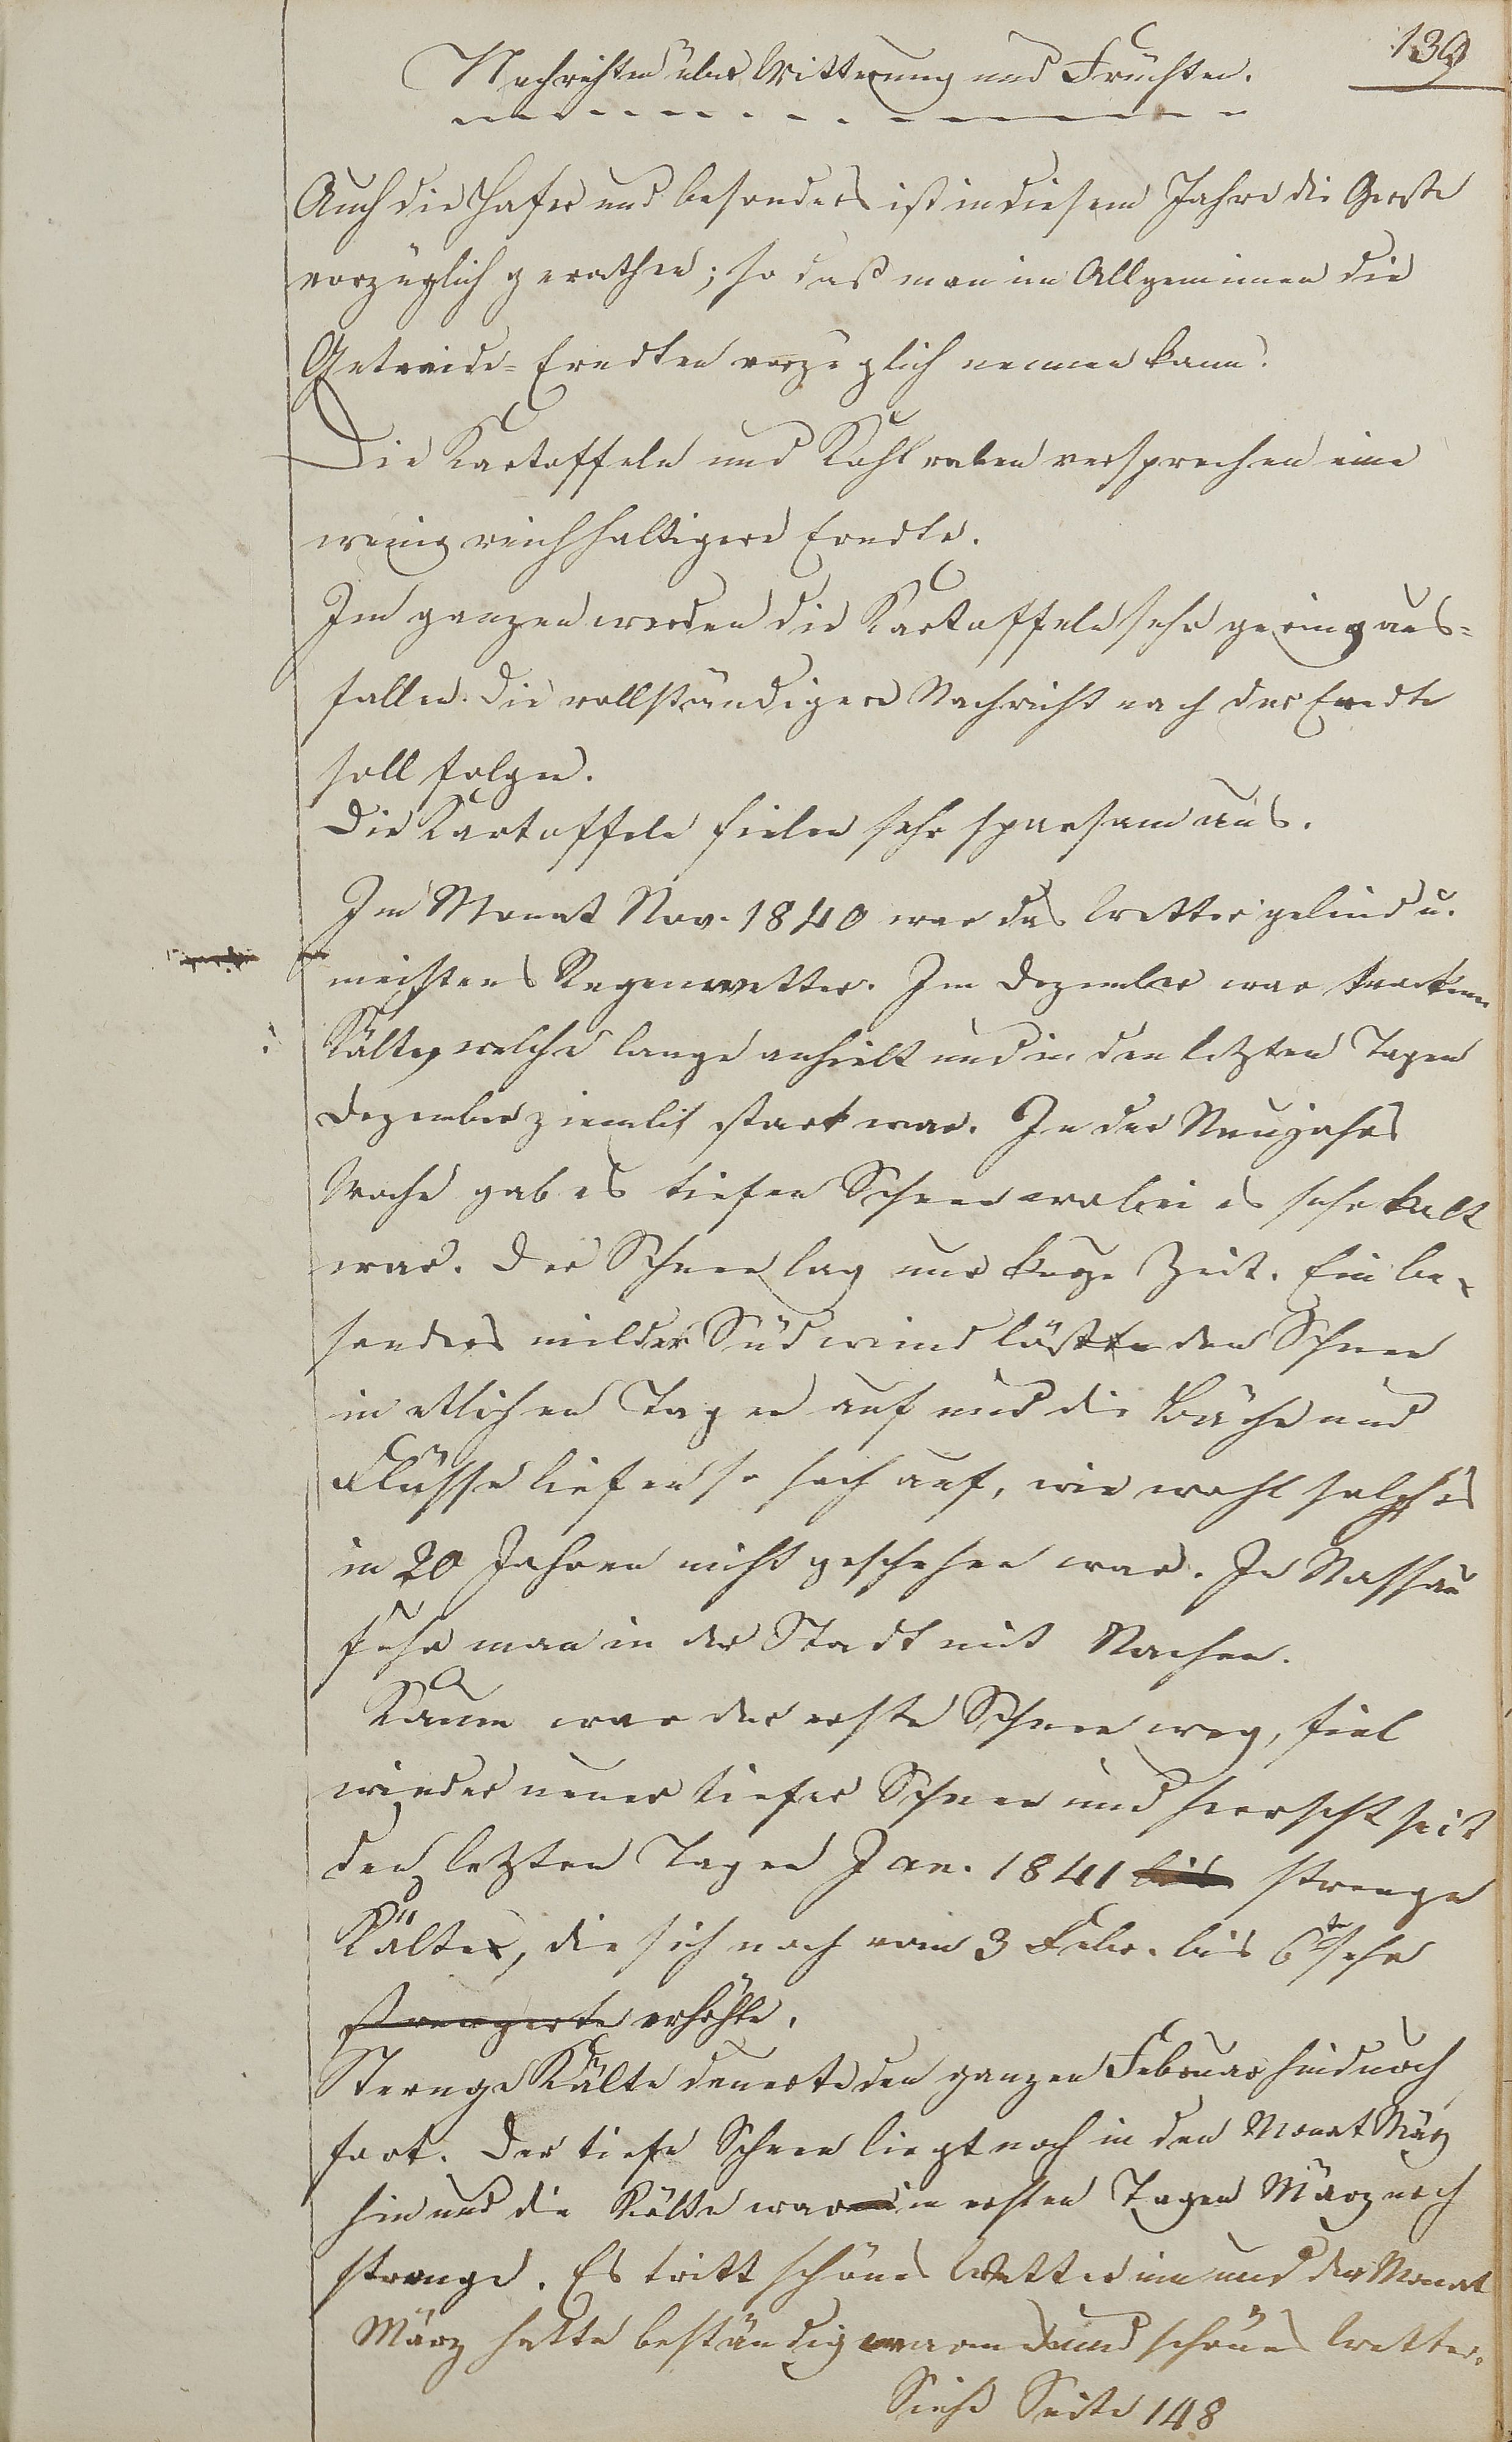 139
Nachrichten über Witterung und Früchten.
Auch die Hafer und besonders ist in diesem Jahre die Gerste
vorzüglich gerathen; so daß man im Allgemeinen die
Getreide-Erndten vorzüglich nennen kann.
Die Kartoffeln und Kohlraben versprechen eine
wenig reichhaltigere Erndte.
Im ganzen werden die Kartoffeln sehr gering aus-
fallen. Die vollständigere Nachricht nach der Erndte
soll folgen.
Die Kartoffeln fielen sehr sparsam aus.
Im Monat Nov. 1840 war das Wetter gelind u.
meistens Regenwetter. Im Dezember war trockene
Kälte, welche lange anhielt und in den letzten Tagen
Dezember ziemlich stark war. In der Neujahrs
Woche gab es tiefen Schnee wobei es sehr kalt
war. Der Schnee lag nur kurze Zeit. Ein be-
sonders milder Südwind löste den Schnee
in etlichen Tagen auf und die Bäche und
Flüsse liefen so hoch auf, wie wohl solches
in 20 Jahren nicht geschehen war. In Nassau
fuhr man in der Stadt mit Nachen.
Kaum war der erste Schnee weg, fiel
wieder neuer tiefer Schnee und herrscht seit
den letzten Tagen Jan. 1841 bis strenge
Kälte, die sich noch vom 3 Febr. bis 6ten sehr
strengerte erhöhte.
Strenge Kälte dauerte den ganzen Februar hindurch
fort. Der tiefe Schnee liegt noch in den Monat März
hin und die Kälte war in ersten Tagen März noch
strenge. Es tritt schönes Wetter ein und der Monat
März hatte beständig warmes und schönes Wetter.
Siehe Seite 148